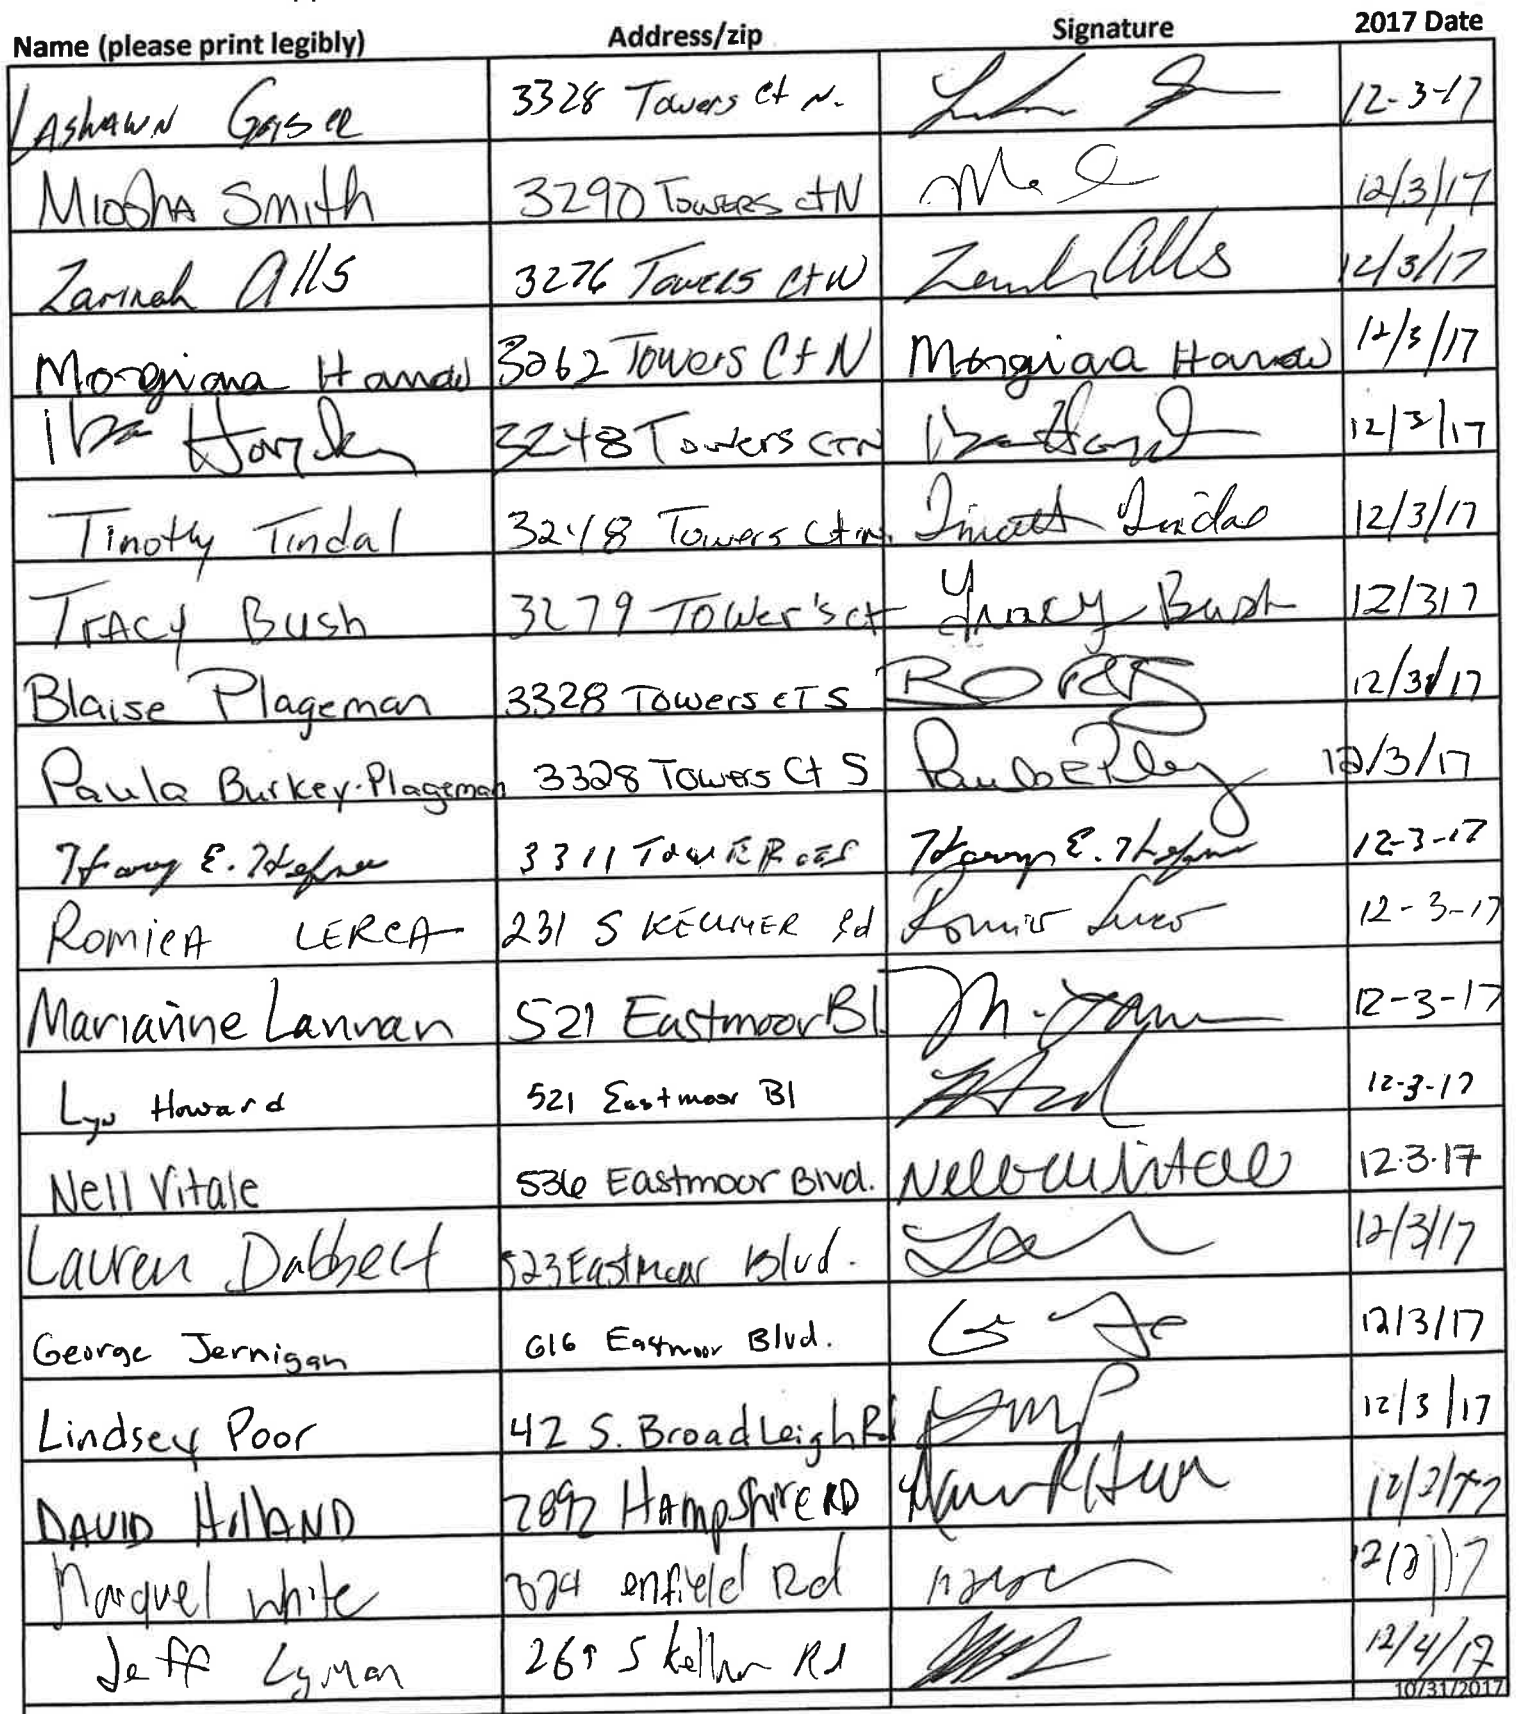 Name (please print legibly) Address/zip Signature 2017 Date
LASHAWN 3328 Towers Ct N. 12-3-17
MIOSHA Smith 3290 TOWERS ctN 12/3/17
Zarinah Alls 3276 TOWERS CtN Alls 12/3/17
Morgiana 3262 Towers Ct N Morgiana 12/3/17
3248 Towers CTN 12/3/17
Timothy Tindal 3248 Towers Ct N. Tindal 12/3/17
TRACY Bush 3279 TOWer's ct Tracy Bush 12/317
Blaise Plageman 3328 Towers CT S 12/3/17
Paula Burkey-Plageman 3328 Towers Ct S 12/3/17
Harry E. 3311 TOWER CTS Harry E. 12-3-17
ROMICA LERCA 231 S KELLNER Rd 12-3-17
Marianne Lannan 521 Eastmoor Bl. 12-3-17
Lyn Howard 521 Eastmoor Bl 12-3-17
Nell Vitale 536 Eastmoor Blvd. 12.3.17
Lauren Dabbert 523 Eastmoor Blvd. 12/3/17
George Jernigan 616 Eastmoor Blvd. 12/3/17
Lindsey Poor 42 S. Broadleigh Rd 12/3/17
DAVID HOLLAND 2892 HAMPShIRE RD
Marquel white enfield Rd
Jeff Lyman S Kellner Rd 12/4/17
10/31/2017